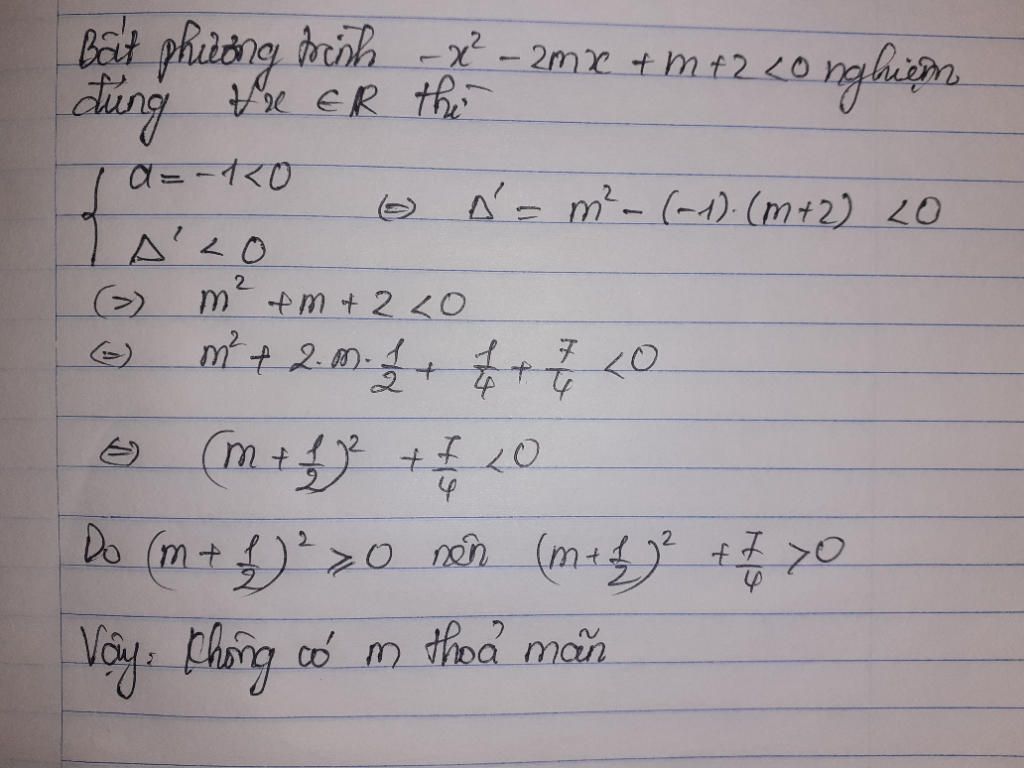 Bất phương trình -x² - 2mx + m + 2 < 0 nghiệm
đúng ∀x ∈ R thì
{ a = -1 < 0
Δ' < 0 (=) Δ' = m² - (-1).(m+2) < 0
(=) m² + m + 2 < 0
(=) m² + 2.m.1/2 + 1/4 + 7/4 < 0
(=) (m + 1/2)² + 7/4 < 0
Do (m + 1/2)² ≥ 0 nên (m + 1/2)² + 7/4 > 0
Vậy: Không có m thoả mãn